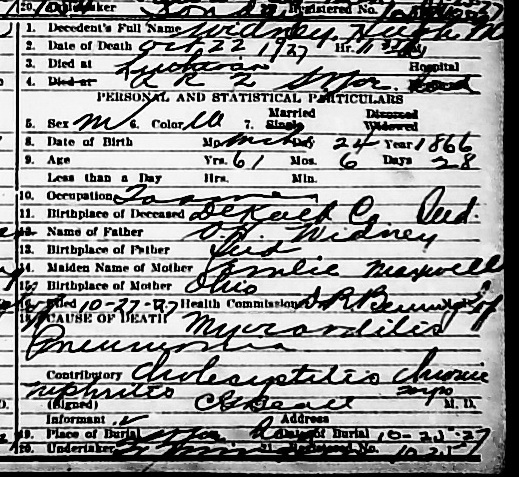 20. Undertaker Registered No.
1. Decedent's Full Name Widney, Hugh M
2. Date of Death Oct 22 1927 Hr.
3. Died at Lutheran Hospital
4. Died at R R 2 St Joe. Road
PERSONAL AND STATISTICAL PARTICULARS
5. Sex M 6. Color W 7. Married Single Divorced Widowed
8. Date of Birth Mo. Mch Day 24 Year 1866
9. Age Yrs. 61 Mos. 6 Days 28
Less than a Day Hrs. Min.
10. Occupation Farmer
11. Birthplace of Deceased DeKalb Co Ind.
12. Name of Father Widney
13. Birthplace of Father Ind
14. Maiden Name of Mother Emilie Maxwell
15. Birthplace of Mother Ohio
Filed 10-27-27 Health Commission
CAUSE OF DEATH Myocarditis
Pneumonia
Contributory Cholecystitis Chronic
Nephritis
(Signed) Beall M. D.
Informant Address
19. Place of Burial St Joe Ind Date of Burial 10-25-27
20. Undertaker 21. Registered No.